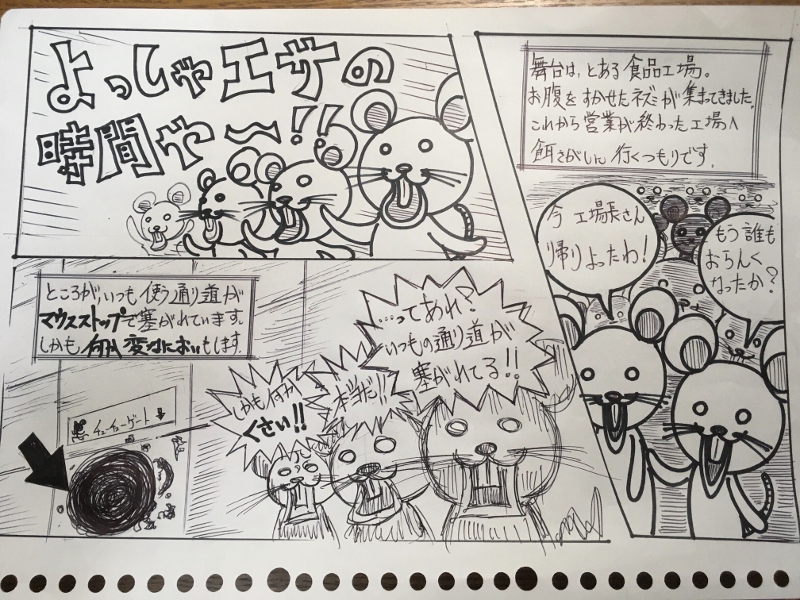 舞台は、とある食品工場。
お腹をすかせたネズミが集まってきました。
これから営業が終わった工場へ
餌さがしに行くつもりです。
今工場長さん
帰りよったわ!
もう誰も
おらんく
なったか?
よっしゃエサの
時間や〜!!
ところが、いつも使う通り道が
マウスストップで塞がれています。
しかも何か変なにおいもします。
…ってあれ?
いつもの通り道が
塞がれてる!!
本当だ!!
しかも何か
くさい!!
チューチューゲート